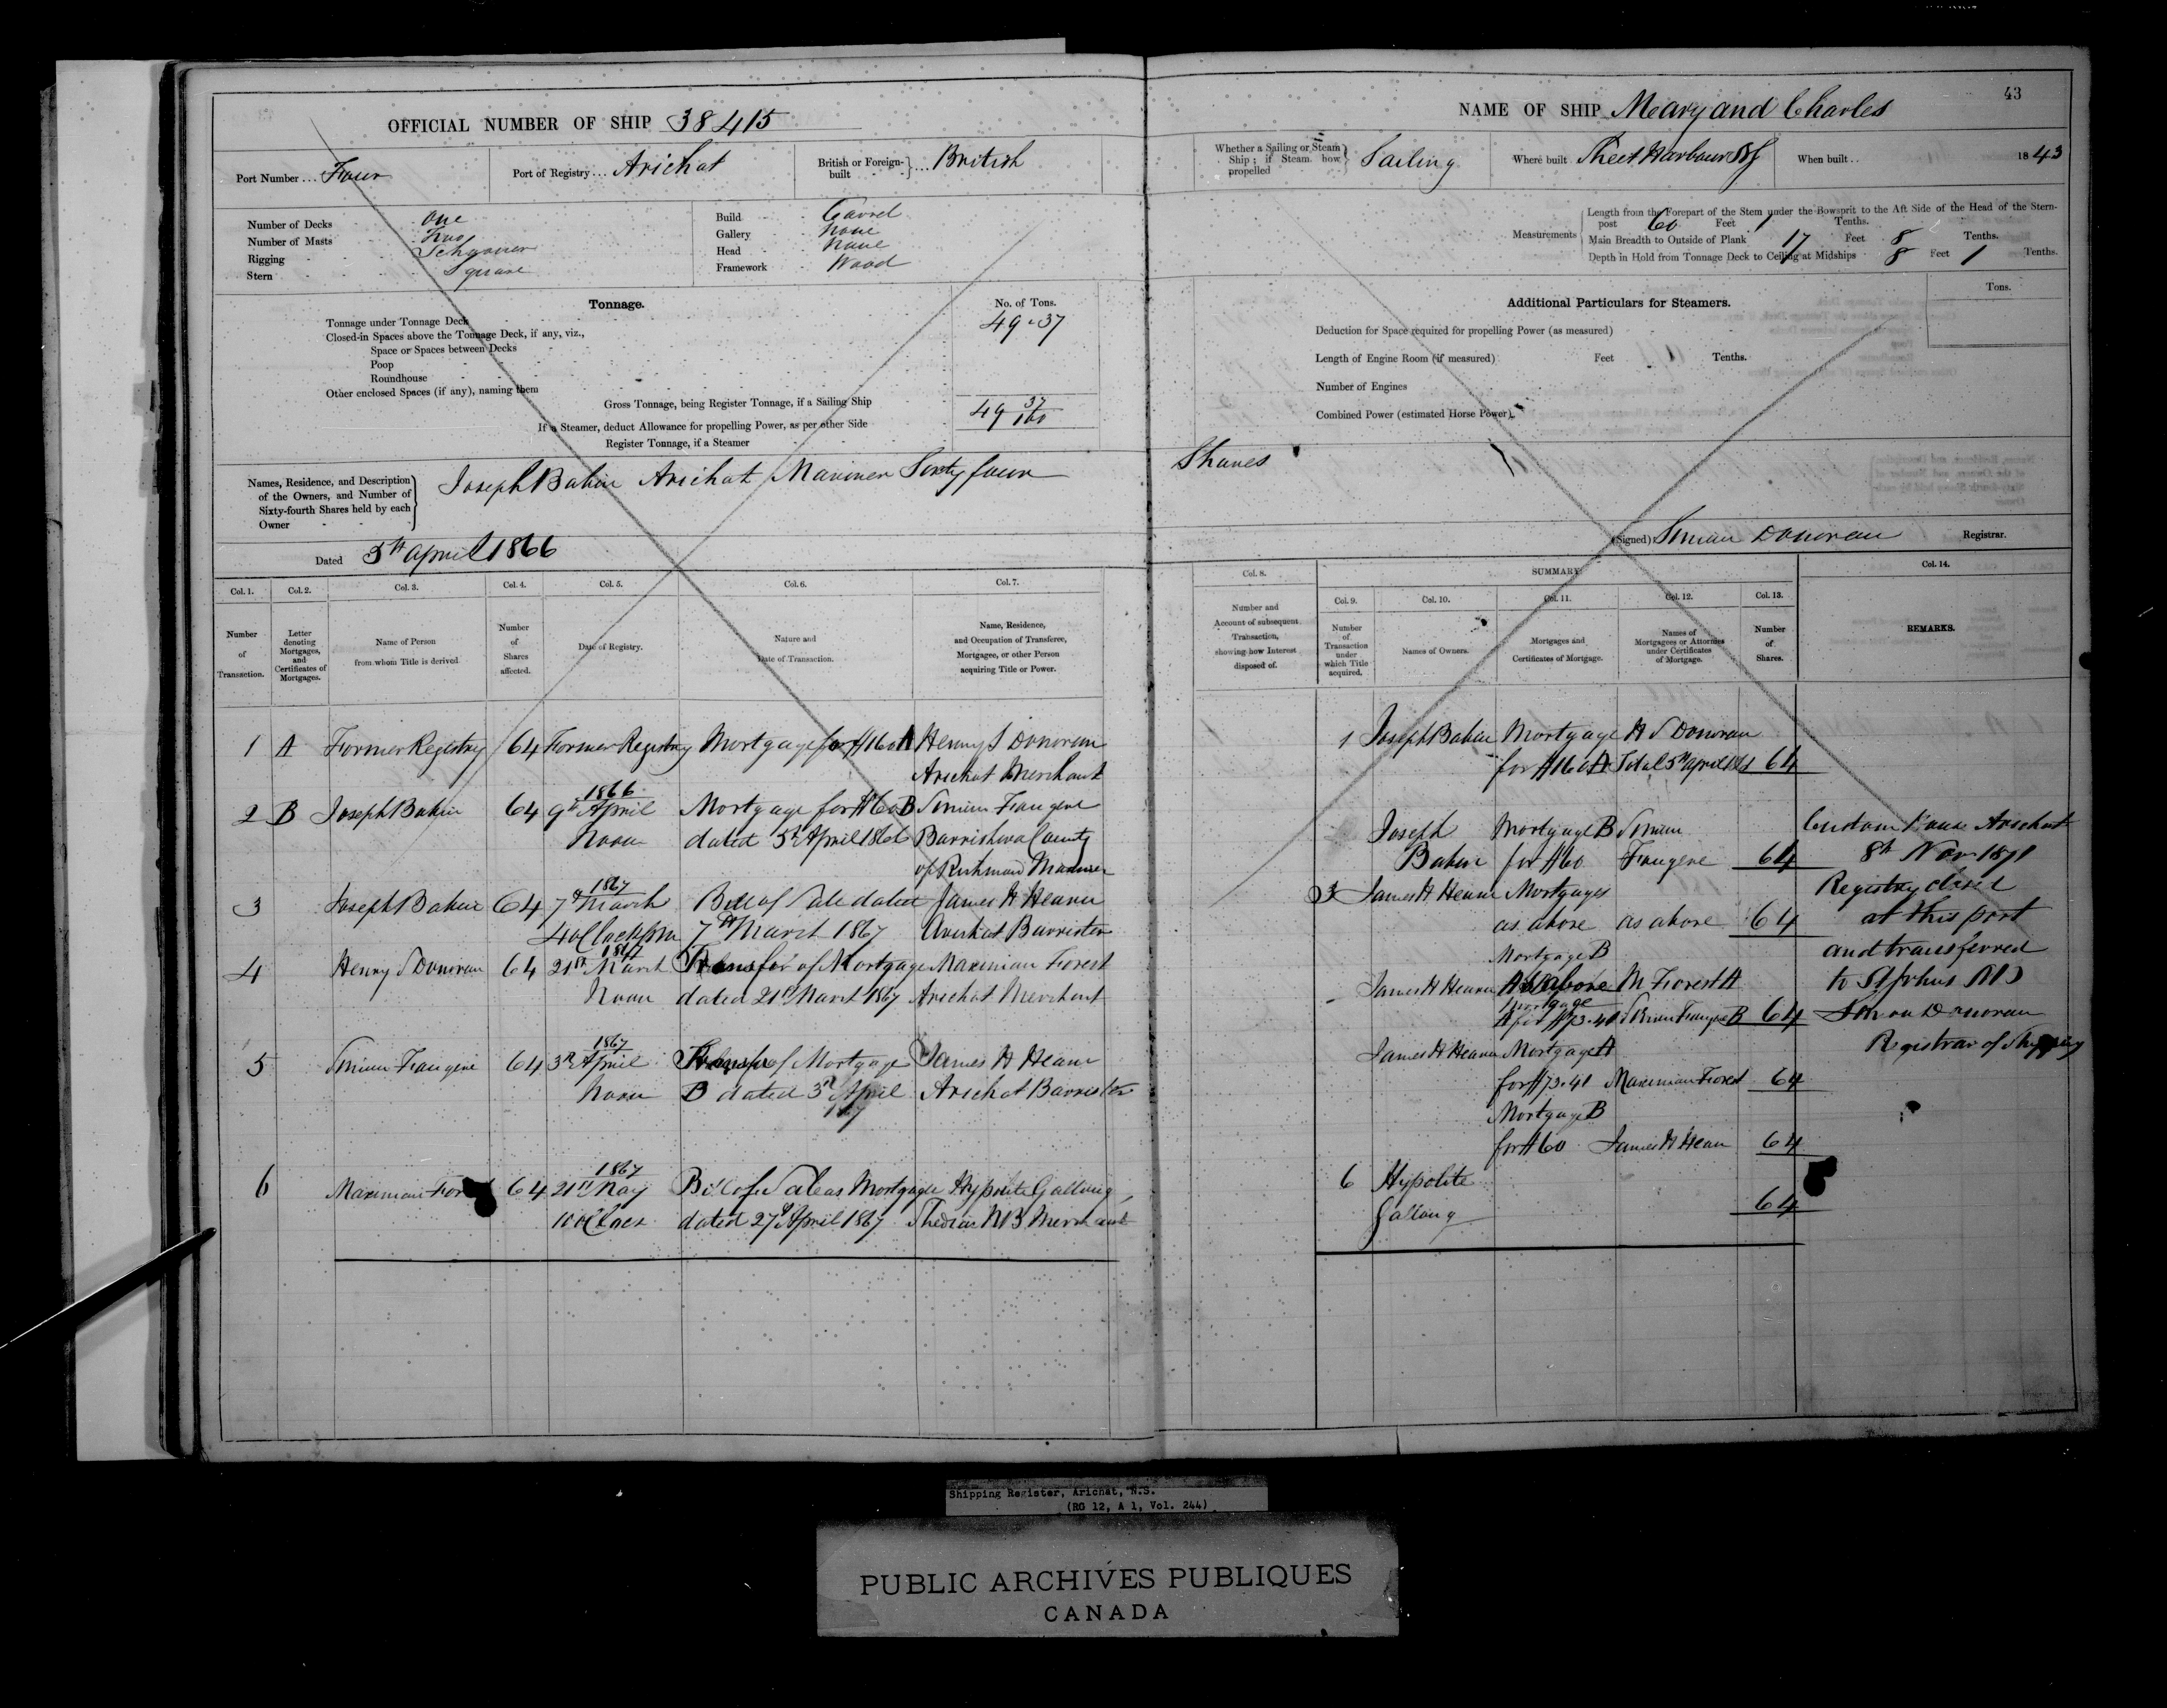 43
OFFICIAL NUMBER OF SHIP 38415
NAME OF SHIP Meary and Charles
Port Number ... Four
Port of Registry ... Arichat
British or Foreign-built ... British
Whether a Sailing or Steam Ship; if Steam how propelled } Sailing
Where built Sheet Harbour NS
When built .. 1843
Number of Decks One
Number of Masts Two
Rigging Schooner
Stern Square
Build Carvel
Gallery None
Head None
Framework Wood
Measurements
Length from the Forepart of the Stem under the Bowsprit to the Aft Side of the Head of the Stern-
post 60 Feet 1 Tenths.
Main Breadth to Outside of Plank 17 Feet 8 Tenths.
Depth in Hold from Tonnage Deck to Ceiling at Midships 8 Feet 1 Tenths.
Tonnage.
No. of Tons.
Tonnage under Tonnage Deck 49.37
Closed-in Spaces above the Tonnage Deck, if any, viz.,
Space or Spaces between Decks
Poop
Roundhouse
Other enclosed Spaces (if any), naming them
Gross Tonnage, being Register Tonnage, if a Sailing Ship 49 37/100
If a Steamer, deduct Allowance for propelling Power, as per other Side
Register Tonnage, if a Steamer
Additional Particulars for Steamers.
Tons.
Deduction for Space required for propelling Power (as measured)
Length of Engine Room (if measured) Feet Tenths.
Number of Engines
Combined Power (estimated Horse Power).
Names, Residence, and Description
of the Owners, and Number of
Sixty-fourth Shares held by each
Owner
Joseph Babin Arichat Mariner Sixty four Shares
Dated 5th April 1866
(Signed) Simon Donovan Registrar.
Col. 1. Col. 2. Col. 3. Col. 4. Col. 5. Col. 6. Col. 7.
Number of Transaction.
Letter denoting Mortgages, and Certificates of Mortgages.
Name of Person from whom Title is derived
Number of Shares affected.
Date of Registry.
Nature and Date of Transaction.
Name, Residence, and Occupation of Transferee, Mortgagee, or other Person acquiring Title or Power.
1 A Former Registry 64 Former Registry Mortgage for $160 A Henry S Donovan
Arichat Merchant
1866
2 B Joseph Babin 64 9th April Mortgage for $60 B Simon Fougere
Noon dated 5th April 1866 County
of Richmond Mariner
1867
3 Joseph Babin 64 7th March Bill of Sale dated James H Hearn
4 oClock pm 7th March 1867 Arichat Barrister
1867
4 Henry S Donovan 64 21st March Transfer of Mortgage Maximian Forest
Noon dated 21st March 1867 Arichat Merchant
1867
5 Simon Fougere 64 3rd April Transfer of Mortgage James H Hearn
Noon B dated 3rd April Arichat Barrister
1867
1867
6 Maximian Forest 64 21st May Bill of Sale as Mortgagee Hypolite Gallang
10 oClock dated 27th April 1867 Shediac NB Merchant
Col. 8. SUMMARY. Col. 14.
Col. 9. Col. 10. Col. 11. Col. 12. Col. 13.
Number and Account of subsequent Transaction, showing how Interest disposed of.
Number of Transaction under which Title acquired.
Names of Owners.
Mortgages and Certificates of Mortgage.
Names of Mortgagees or Attornies under Certificates of Mortgage.
Number of Shares.
REMARKS.
1 Joseph Babin Mortgage H S Donovan
for $160 A 64
Joseph Mortgage B Simon
Babin for $60 Fougere 64
3 James H Hearn Mortgages
as above as above 64
Mortgage B
James H Hearn as above M Forest A
Mortgage
A for $73.41 Simon Fougere B 64
James H Hearn Mortgage A
for $73.41 Maximian Forest 64
Mortgage B
for $60 James H Hearn 64
6 Hypolite
Gallang 64
Custom House Arichat
8th Nov 1871
Registry closed
at this port
and transferred
to St Johns
Simon Donovan
Registrar of Shipping
Shipping Register, Arichat, N.S.
(RG 12, A 1, Vol. 244)
PUBLIC ARCHIVES PUBLIQUES
CANADA